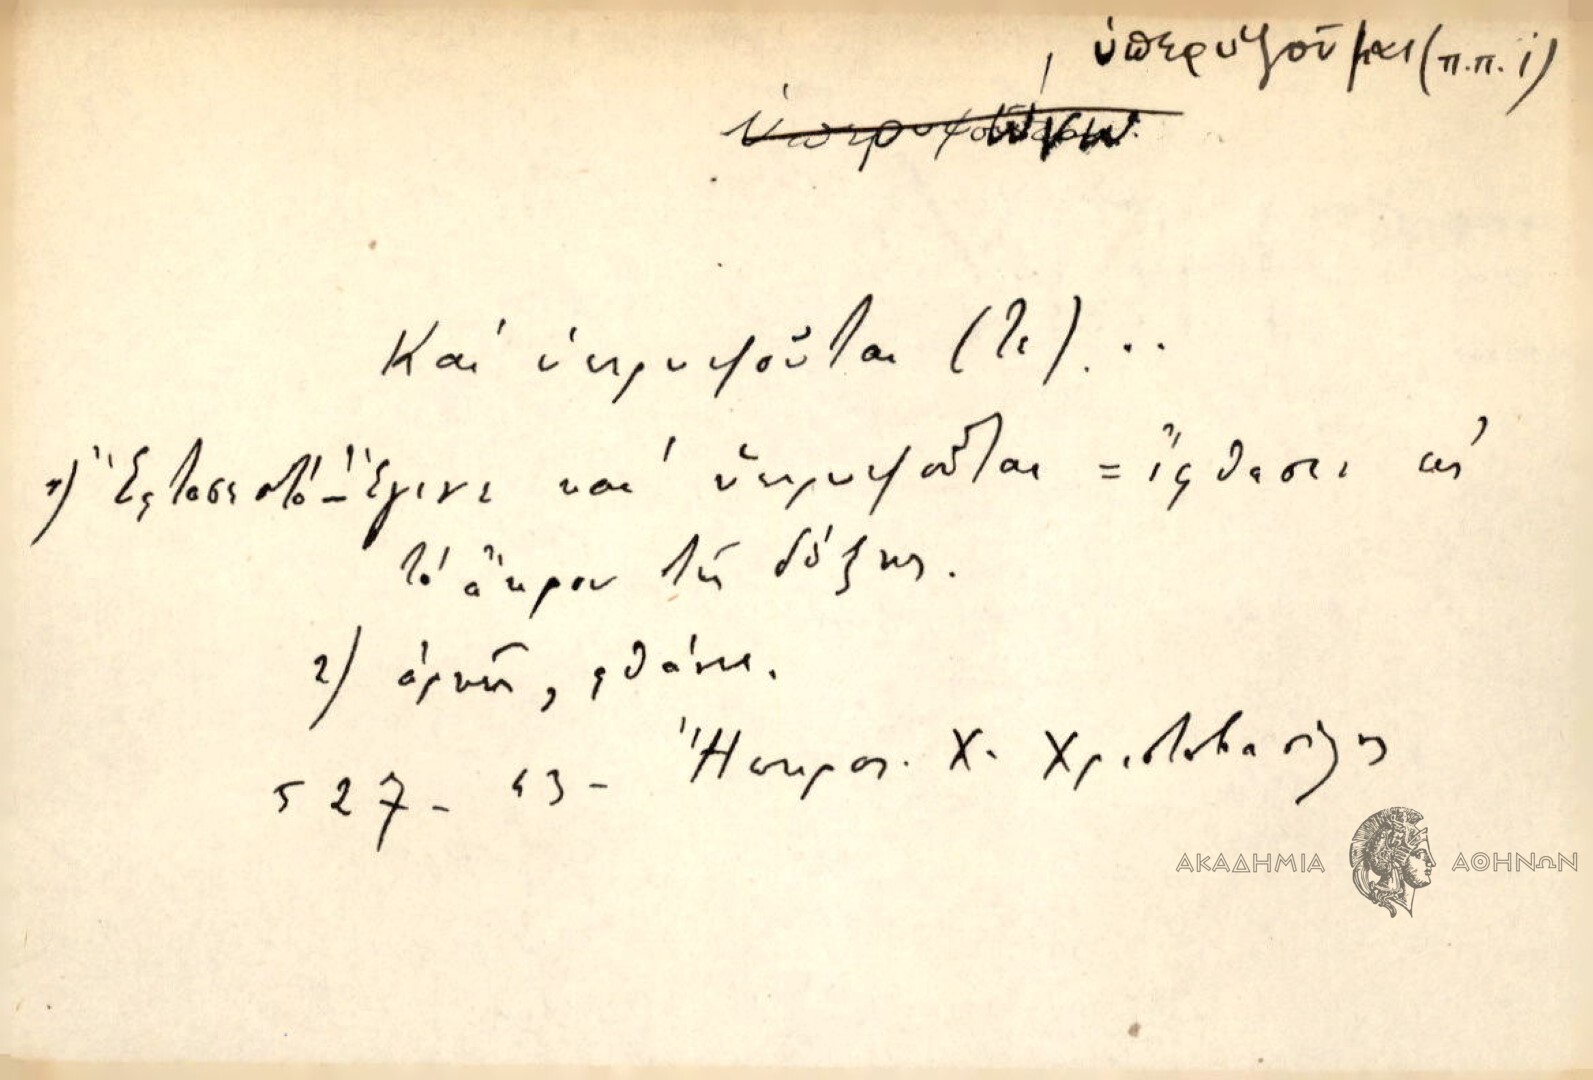 ὑπερυψοῦμαι (π.π. 1)
Καὶ ὑπερυψοῦται (τε)...
1) Ἔφτασε στό - Ἔγινε καὶ ὑπερυψοῦται = ἔφθασε εἰς
τὸ ἄκρον τῆς δόξης.
2) ἀρκεῖ, φθάνει.
527 - 43 - Ἤπειρος. Χ. Χρισтοβασίλης
ΑΚΑΔΗΜΙΑ ΑΘΗΝΩΝ